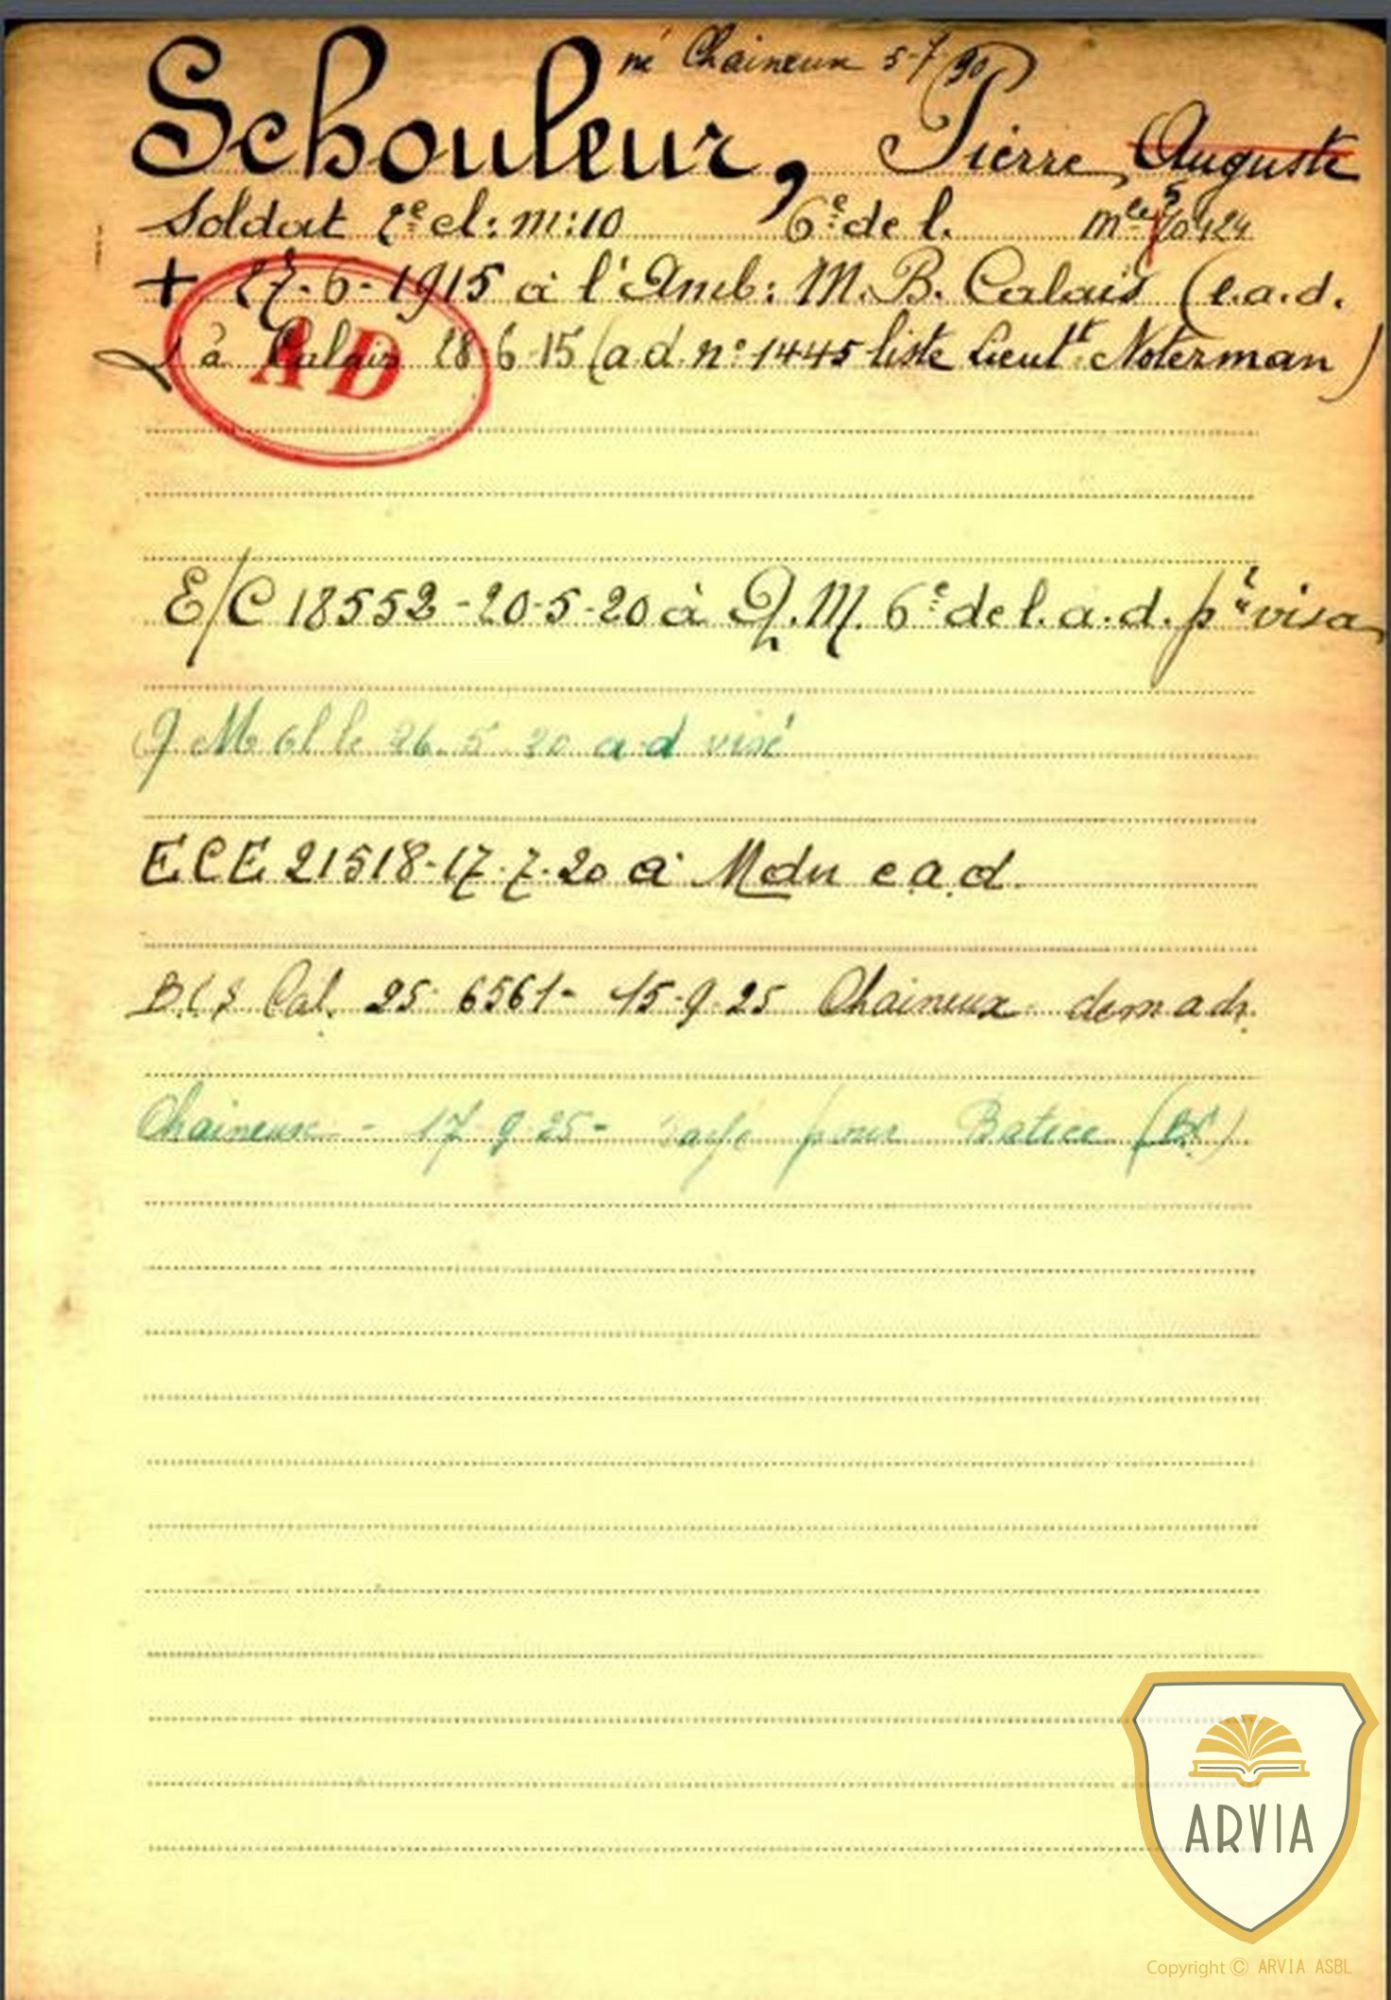 né Chaineux 5-7-90
Schouleur, Pierre Auguste
Soldat 2e cl: m:10 6e de l. mle
+ 27-6-1915 à l'Amb: M.B. Calais (e.a.d.
à Calais 28-6-15 (a.d. n° 1445 liste Lieutt Noterman)
A D
E/C 18552-20-5-20 à Q.M. 6e de l. a.d. pr visa
Q M 6l le 26-5-20 a d visé
ECE 21518-17-7-20 à Mdn e.a.d.
Cal. 25 6561- 15-9-25 Chaineux dem adr.
Chaineux - 17-9-25- pour Battice
ARVIA
Copyright © ARVIA ASBL